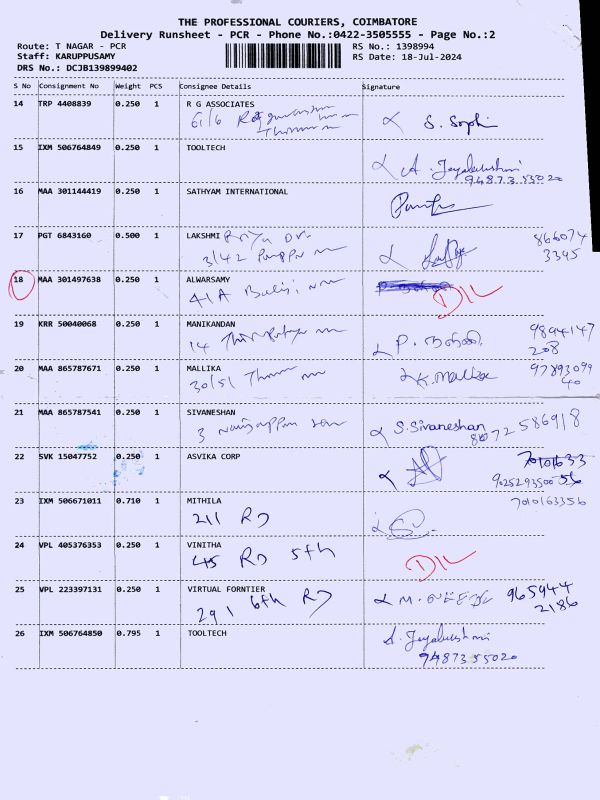 THE PROFESSIONAL COURIERS, COIMBATORE
Delivery Runsheet - PCR - Phone No.:0422-3505555 - Page No.:2
Route: T NAGAR - PCR RS No.: 1398994
Staff: KARUPPUSAMY RS Date: 18-Jul-2024
DRS No.: DCJB139899402
S No Consignment No Weight PCS Consignee Details Signature
14 TRP 4408839 0.250 1 R G ASSOCIATES
S. Sophi
15 IXM 506764849 0.250 1 TOOLTECH
A. Jeyalakshmi
94873 55020
16 MAA 301144419 0.250 1 SATHYAM INTERNATIONAL
17 PGT 6843160 0.500 1 LAKSHMI Priya Dr. 866074
3/42 3395
18 MAA 301497638 0.250 1 ALWARSAMY
41A DIL
19 KRR 50040068 0.250 1 MANIKANDAN 9894147
14 P. 208
20 MAA 865787671 0.250 1 MALLIKA K. Mallika 97893099
30/51 40
21 MAA 865787541 0.250 1 SIVANESHAN
3 S. Sivaneshan 8072586918
22 SVK 15047752 0.250 1 ASVIKA CORP
9025293500
23 IXM 506671011 0.710 1 MITHILA 7010163356
211 RD
24 VPL 405376353 0.250 1 VINITHA
45 RD 5th DIL
25 VPL 223397131 0.250 1 VIRTUAL FORNTIER M. 965944
291 6th RD 2186
26 IXM 506764850 0.795 1 TOOLTECH A. Jeyalakshmi
94873 55020